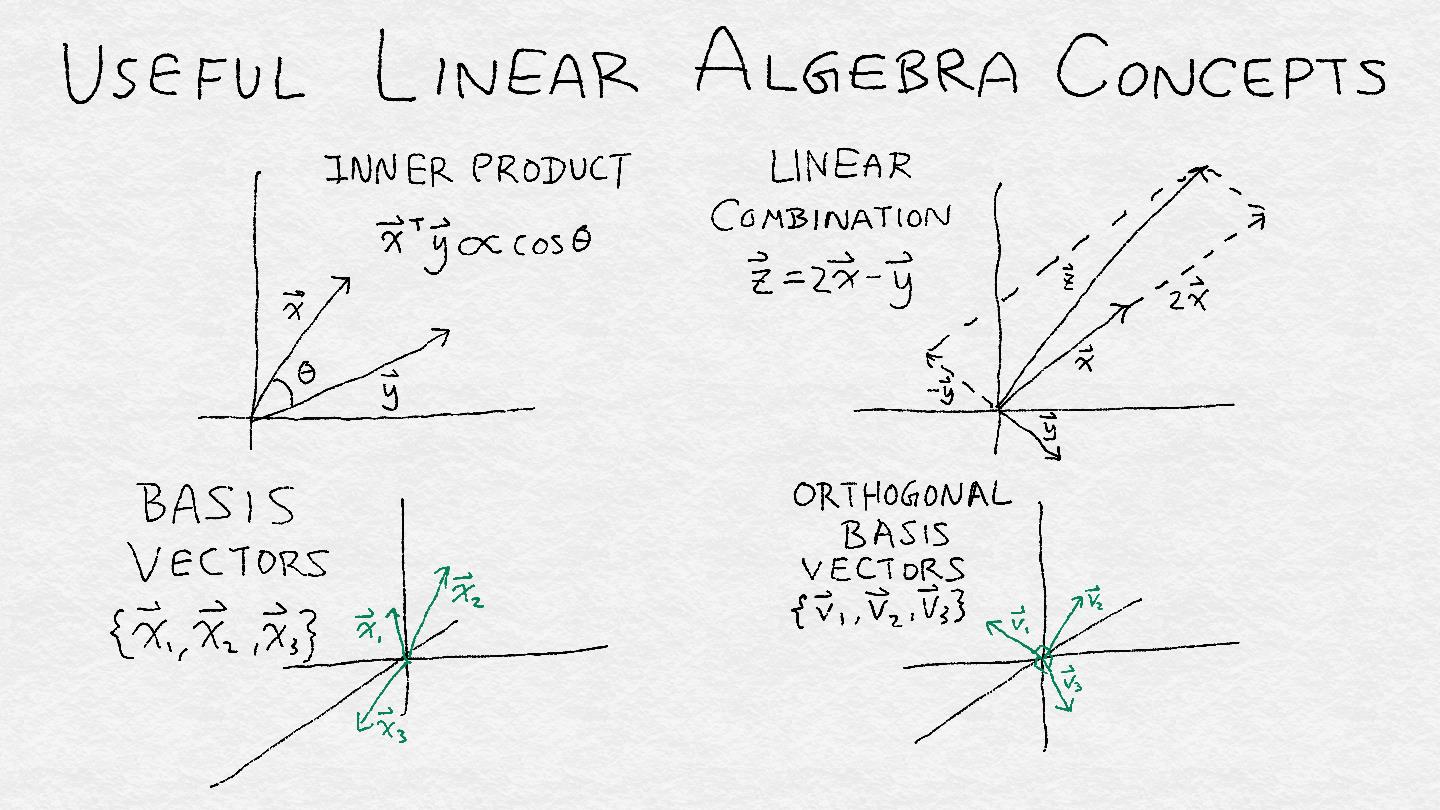 USEFUL LINEAR ALGEBRA CONCEPTS
INNER PRODUCT
x⃗ᵀy⃗ ∝ cos θ
x⃗
θ
y⃗
LINEAR
COMBINATION
z⃗ = 2x⃗ - y⃗
z⃗
2x⃗
x⃗
-y⃗
y⃗
BASIS
VECTORS
{x⃗₁, x⃗₂, x⃗₃}
x⃗₁
x⃗₂
x⃗₃
ORTHOGONAL
BASIS
VECTORS
{v⃗₁, v⃗₂, v⃗₃}
v⃗₁
v⃗₂
v⃗₃